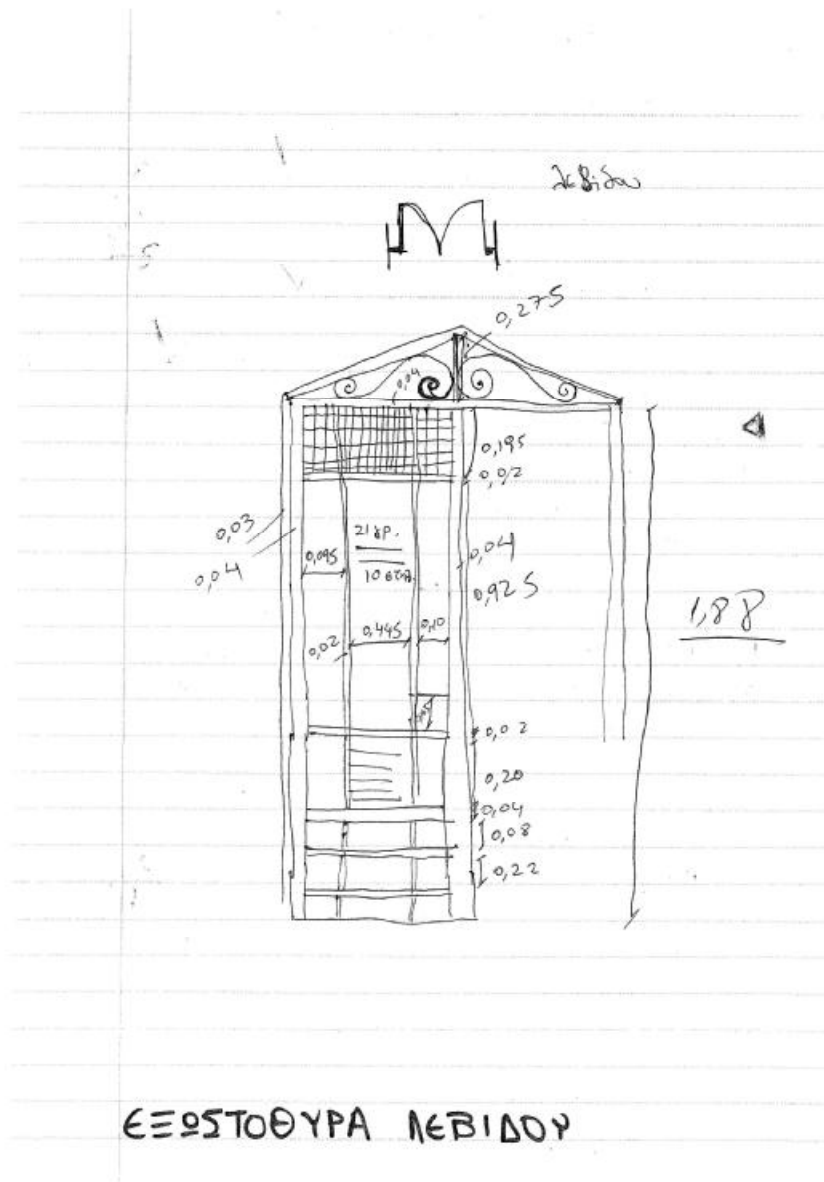 λεβίδου
0,275
0,04
0,195
0,02
0,03
0,04
21 γρ.
10 στηλ.
0,095
0,04
0,925
1,88
0,02
0,445
0,10
0,02
0,20
0,04
0,08
0,22
ΕΞΩΣΤΟΘΥΡΑ ΛΕΒΙΔΟΥ